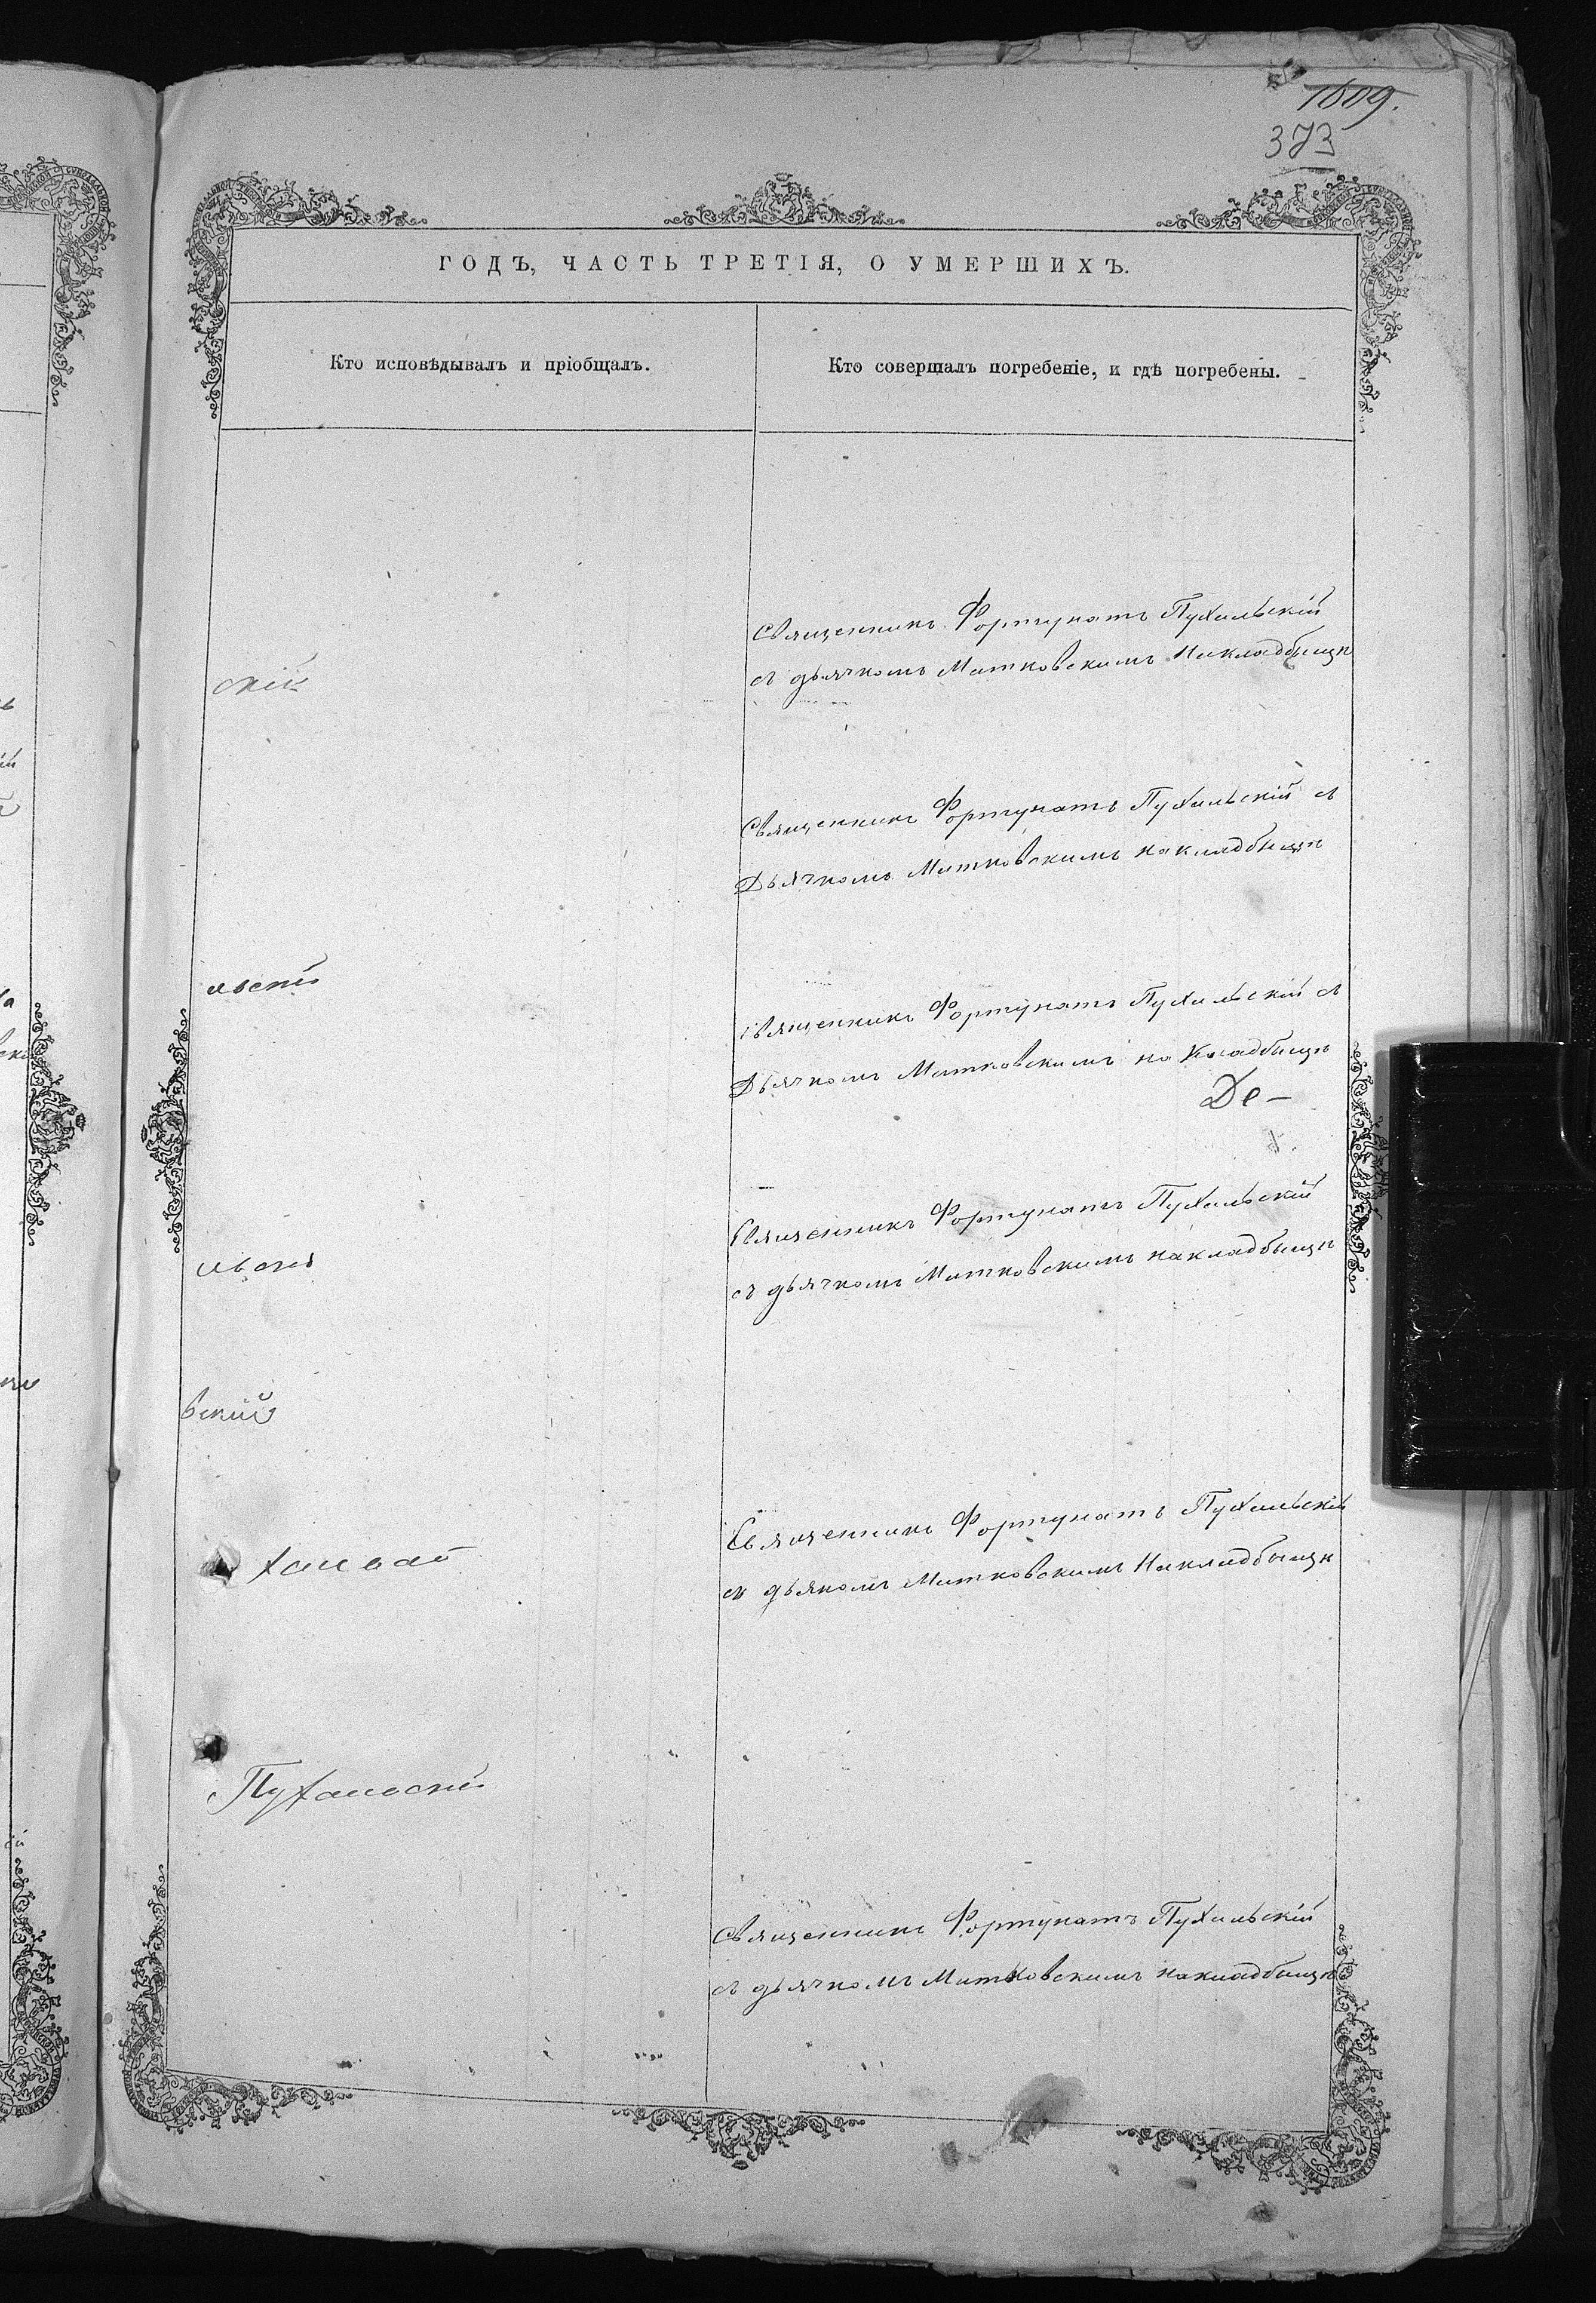 1609.
373
ГОДЪ, ЧАСТЬ ТРЕТІЯ, О УМЕРШИХЪ.
Кто исповѣдывалъ и пріобщалъ.
Кто совершалъ погребеніе, и гдѣ погребены.
Священникъ Фортунатъ Пухальскій
съ дьячкомъ Митковскимъ Накладбищѣ
скій
Священникъ Фортунатъ Пухальскій съ
Дьячкомъ Митковскимъ накладбищѣ
льскій
Священникъ Фортунатъ Пухальскій съ
Дьячкомъ Митковскимъ на Кладбищѣ
Де-
Священникъ Фортунатъ Пухальскій
съ дьячкомъ Митковскимъ накладбищѣ
вскій
Священникъ Фортунатъ Пухальскій
съ дьякомъ Митковскимъ Накладбищѣ
Пухальскій
Священникъ Фортунатъ Пухальскій
съ дьячкомъ Митковскимъ накладбищѣ